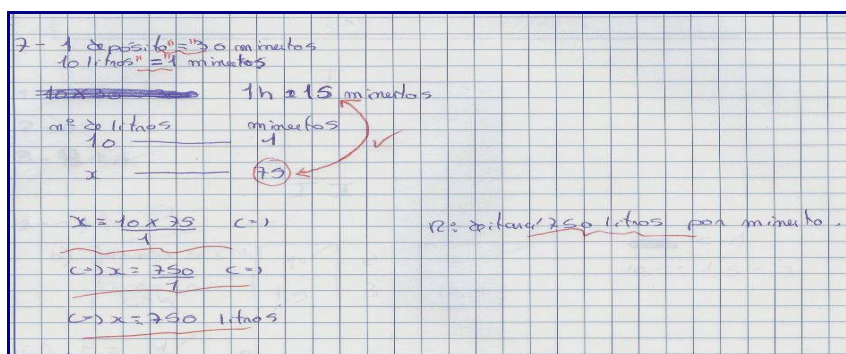 7 - 1 depósito "=" 30 minutos
10 litros "=" 1 minutos
10 x 30
1h e 15 minutos
nº de litros minutos
10 ——— 1
x ——— 75
x = 10 x 75 / 1 (=)
(=) x = 750 / 1 (=)
(=) x = 750 litros
R: deitará 750 litros por minuto.